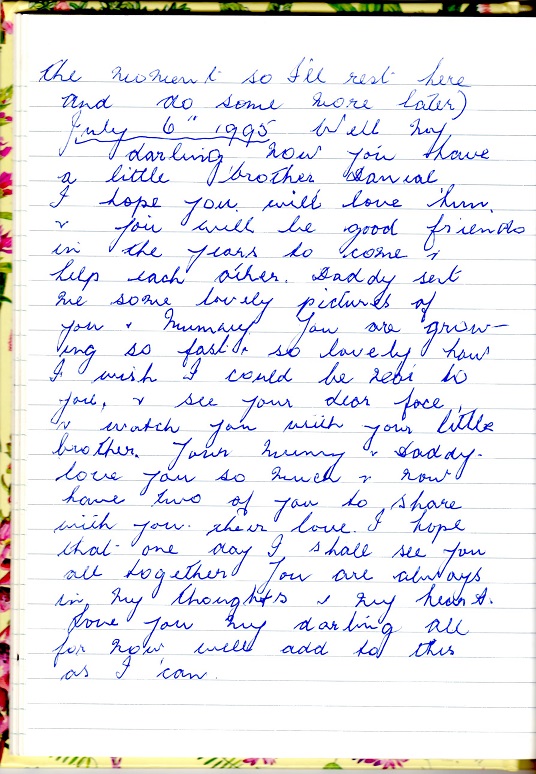 the moment so I'll rest here
and do some more later)
July 6" 1995 Well my
darling now you have
a little brother Danial
I hope you will love him.
& you will be good friends
in the years to come &
help each other. Daddy sent
me some lovely pictures of
you & Mummy You are grow-
ing so fast & so lovely how
I wish I could be next to
you, & see your dear face,
& watch you with your little
brother. Your Mummy & Daddy.
love you so much & now
have two of you to share
with you. their love. I hope
that one day I shall see you
all together You are always
in my thoughts & my heart.
Love you my darling all
for now will add to this
as I can.